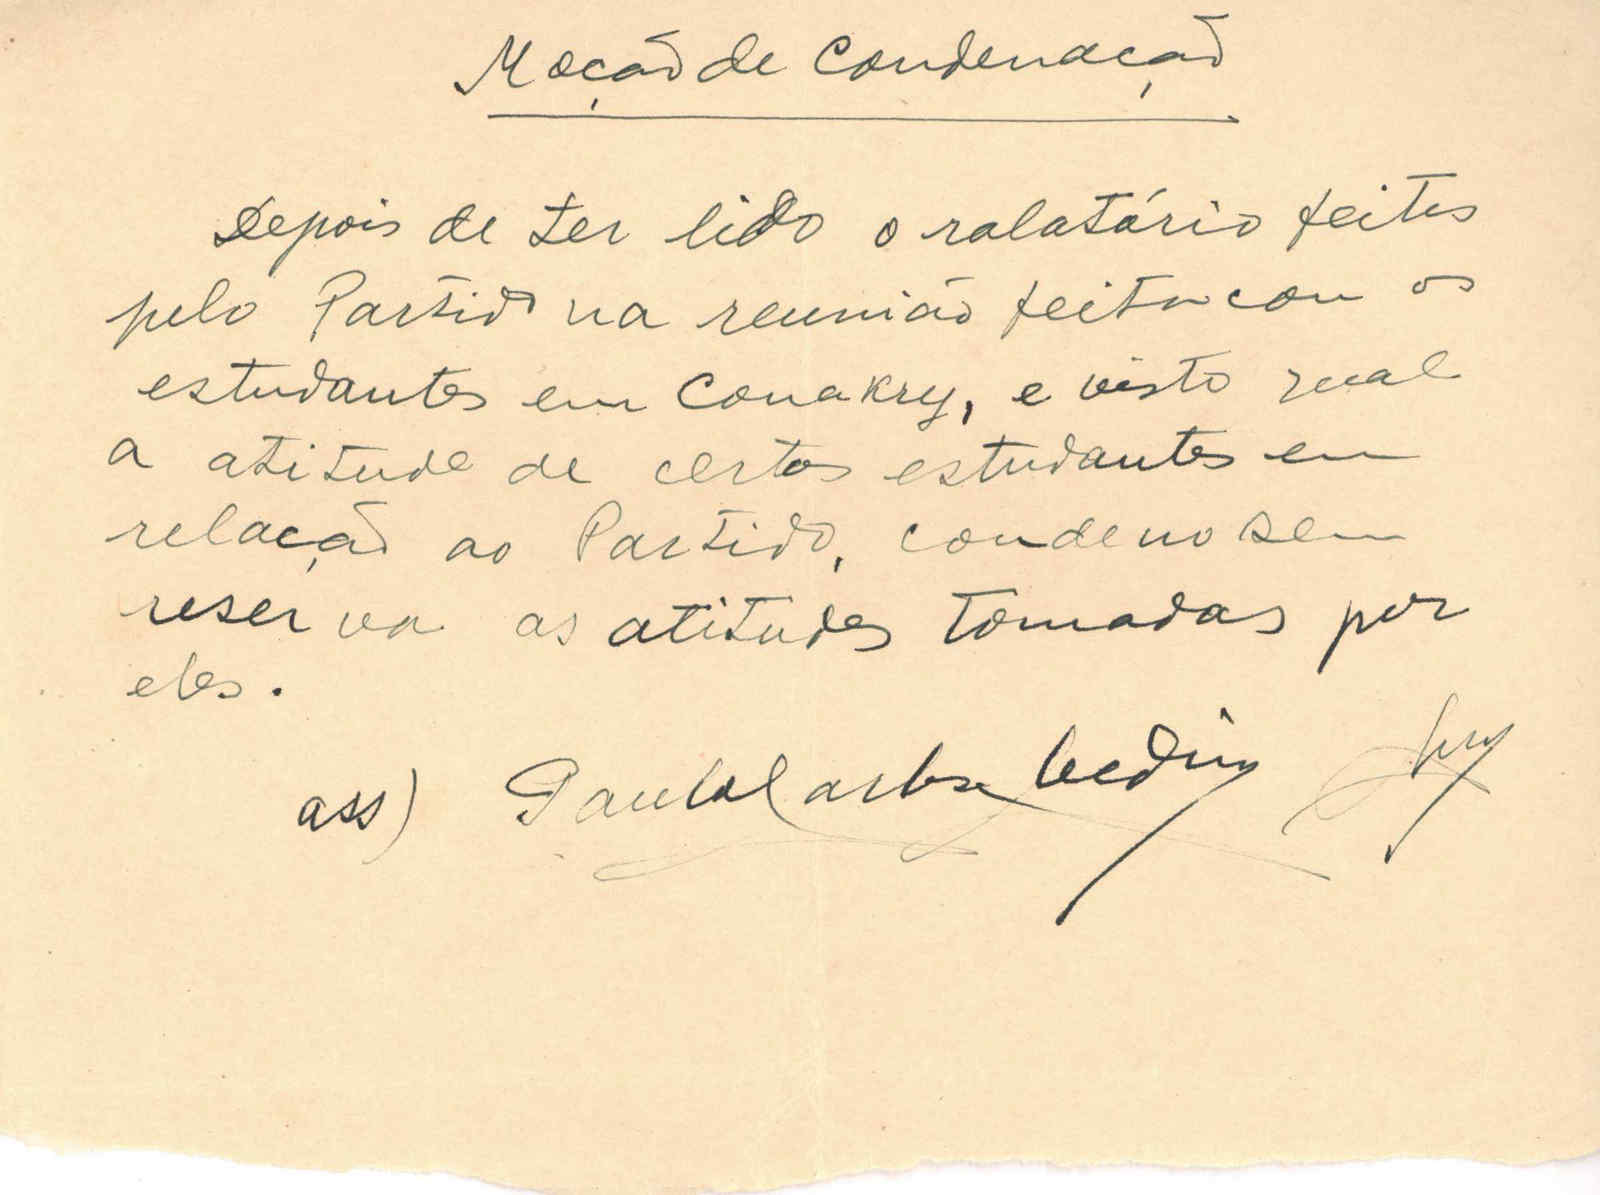 Moção de Condenação
Depois de ter lido o ralatório feitos
pelo Partido na reunião feita com os
estudantes em Conakry, e visto qual
a atitude de certos estudantes em
relação ao Partido, condeno sem
reserva as atitudes tomadas por
eles.
ass) Paulo Carlos Medina